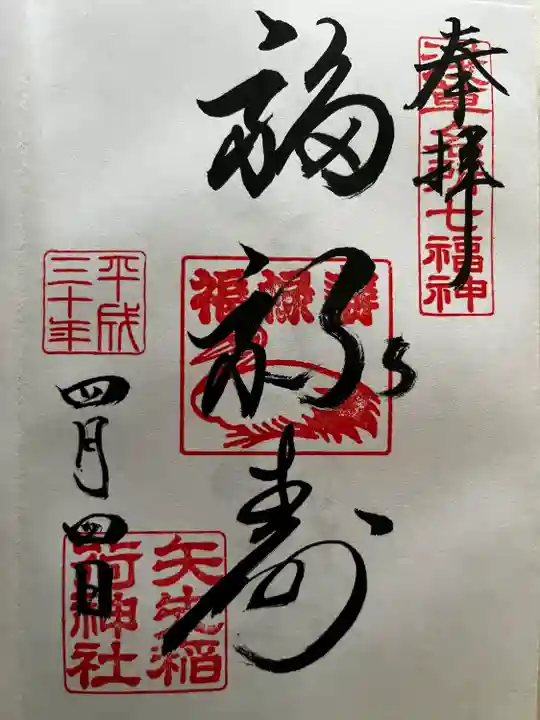 奉拝
浅草名所七福神
福禄寿
福禄寿
平成
三十年
四月四日
矢先稲
荷神社